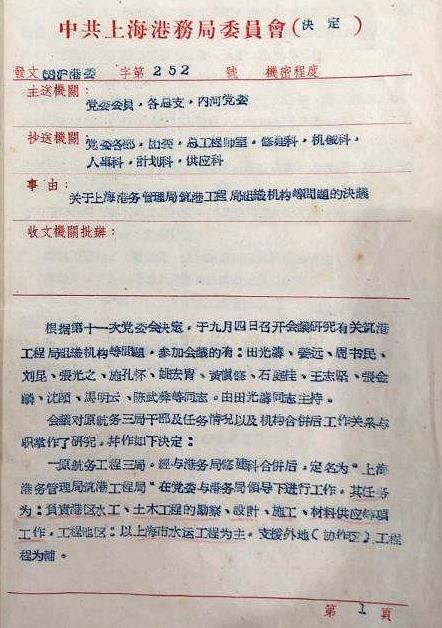 中共上海港務局委員會（决定）
發文 沪港委 字第 252 號 機密程度
主送機關：
党委委員，各总支，内河党委
抄送機關：党委各部，团委，总工程师室，修建科，机械科，
人事科，計划科，供应科
事由：
关于上海港务管理局筑港工程局組織机构等問題的决議
收文機關批辦：
根据第十一次党委会决定，于九月四日召开会議研究有关筑港
工程局組織机构等問題，参加会議的有：田光濤、姜远、周书民、
刘昆、張光之、施孔怀、姚宏胄、黄慎修、石庭桂、王志坚、張金
麟、沈頤、馬明云、陈武 等同志。由田光濤同志主持。
会議对原航务三局干部及任务情况以及机构合併后工作关系与
职掌作了研究。幷作如下决定：
一原航务工程三局。經与港务局修建科合併后，定名为“上海
港务管理局筑港工程局”在党委与港务局領导下进行工作。其任务
为：負責港区水工、土木工程的勘察、設計、施工、材料供应等項
工作，工程地区：以上海市水运工程为主，支援外地（协作区）工程
程为輔。
第 1 頁